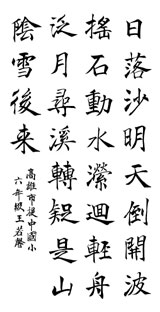 日落沙明天倒開波
搖石動水縈迴輕舟
泛月尋溪轉疑是山
陰雪後来
高雄市援中國小
六年級王若馨